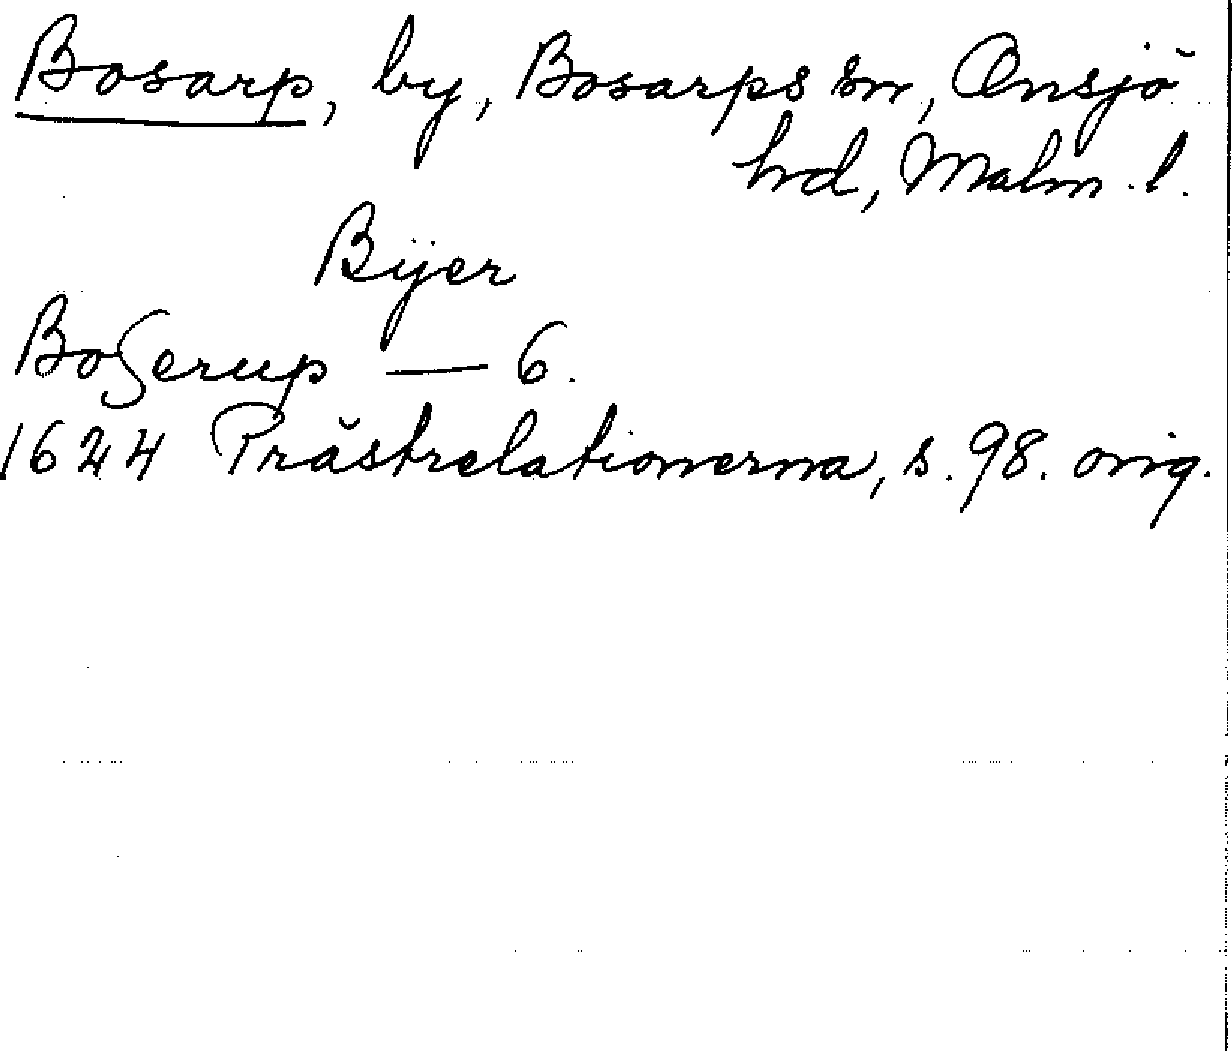 Bosarp, by, Bosarps sn, Onsjö
hrd, Malm. l.
Bÿer
Boßerup — 6.
1624 Prästrelationerna, s. 98. orig.